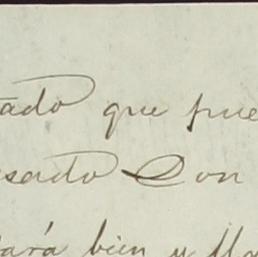 tado que pue
esado Don
tará bien y lla